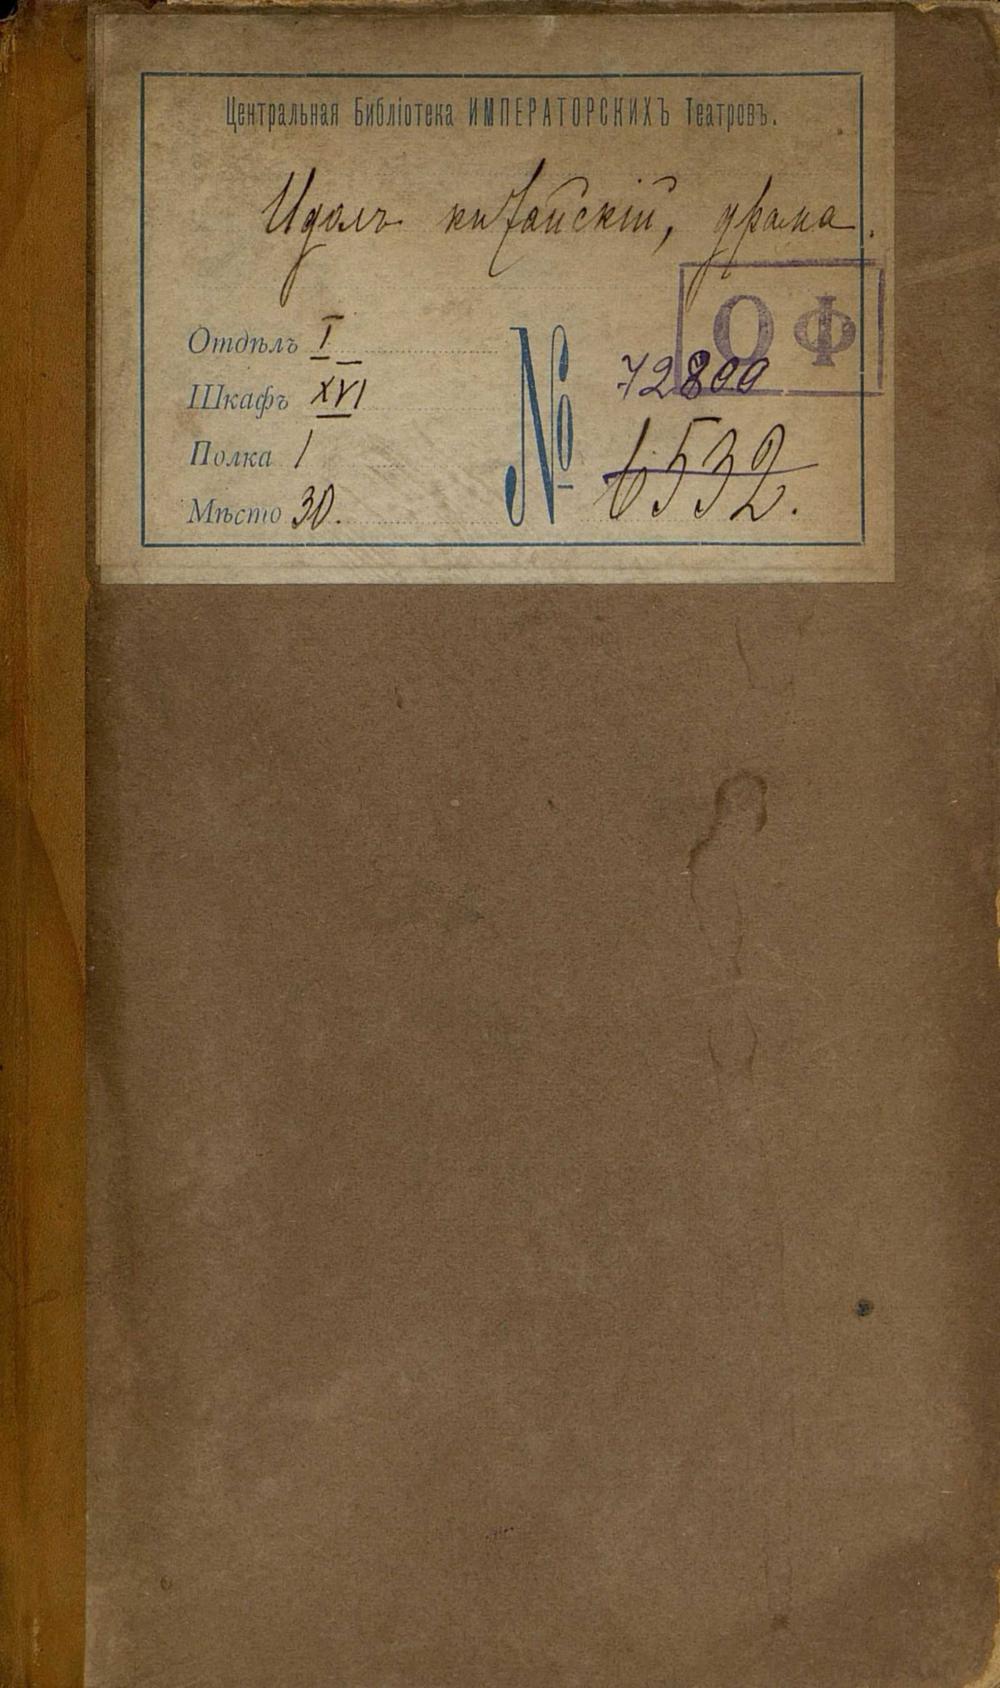 Центральная Библіотека ИМПЕРАТОРСКИХЪ Театровъ.
Идолъ китайскій, драма.
ОФ
Отдѣлъ I
Шкафъ XVI
Полка 1
Мѣсто 30.
№
72800
6532.